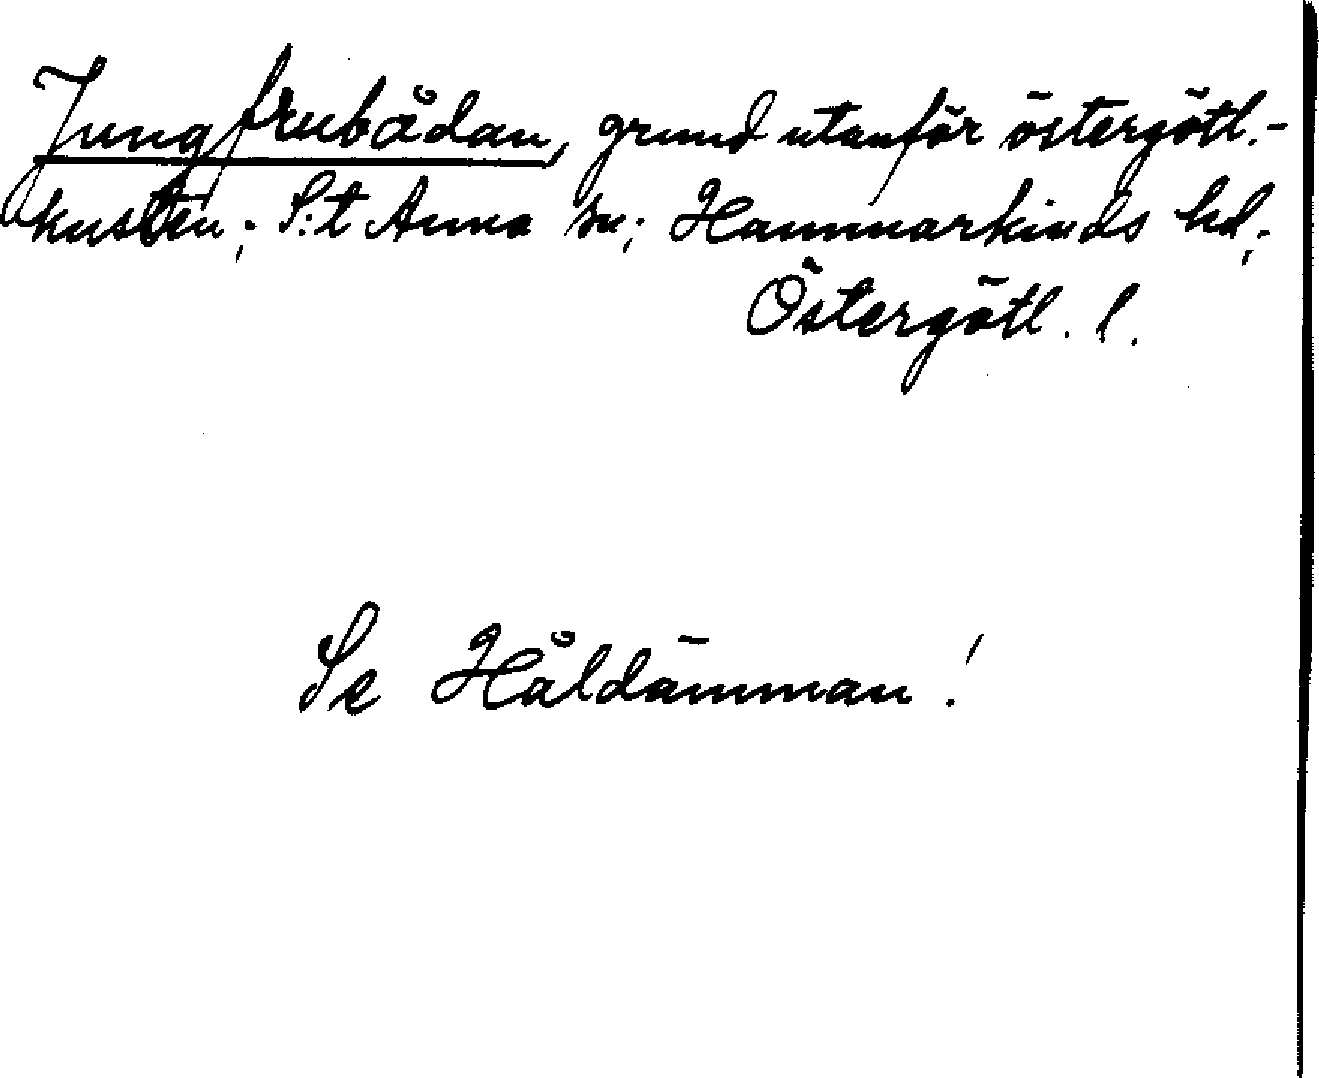 Jungfrubådan, grund utanför östergötl.-
kusten; S:t Anna sn; Hammarkinds hd;
Östergötl. l.
Se Håldämman!